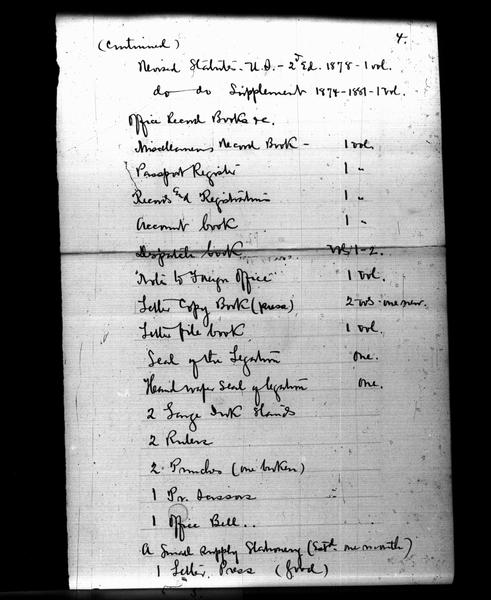 4.
(Continued)
Revised Statute - U.S. - 2d Ed. 1878 - 1 vol.
do — do Supplement 1874-1881 - 1 vol.
Office Record Books &c.
Miscellaneous Record Book - 1 vol.
Passport Register 1 "
Records Registration 1 "
Account book 1 "
Dispatch book vols 1-2.
"Note to Foreign Office" 1 vol.
Letter Copy Book (press) 2 vols - one new.
Letter file book 1 vol.
Seal of the Legation one.
Hand wafer Seal of legation one.
2 Large Ink Stands
2 Rulers
2 Punches (one broken)
1 Pr. Scissors
1 Office Bell..
A Small supply Stationery (Estd one month)
1 Letter Press (good)